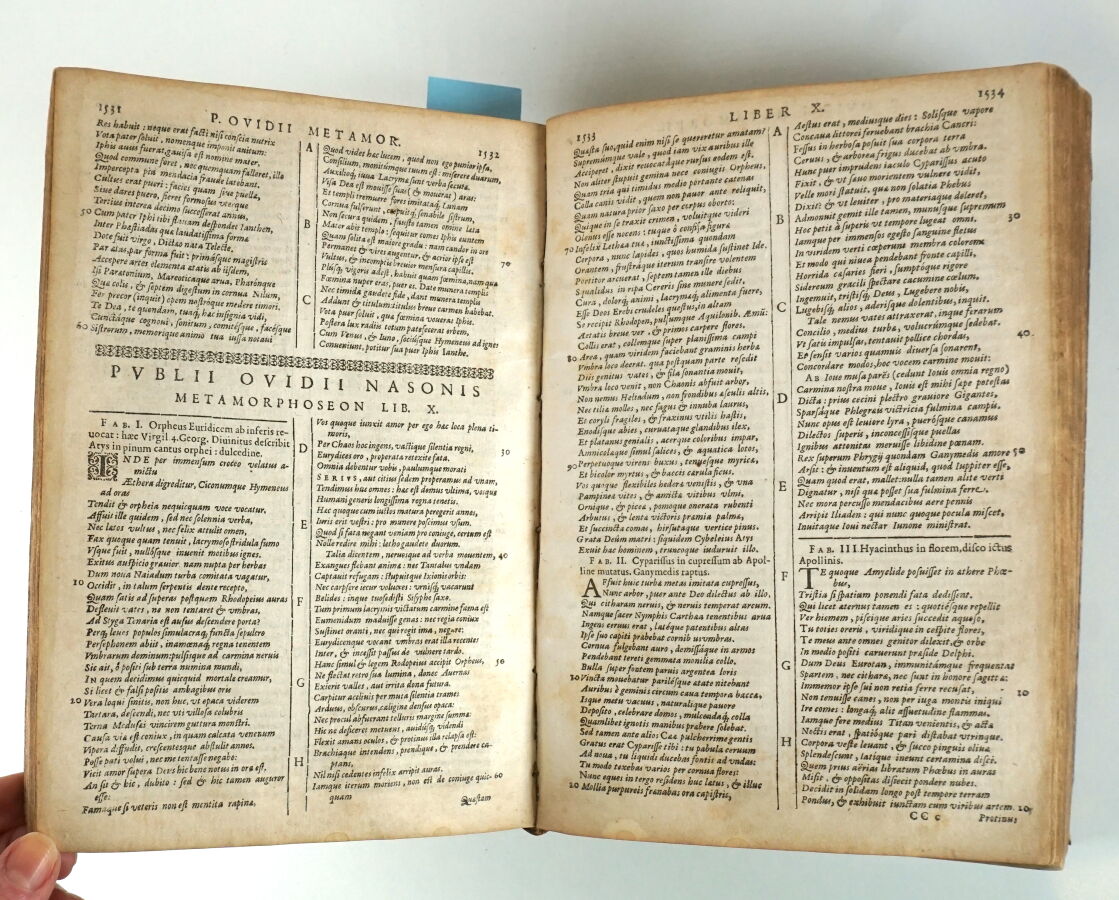 1531
P. OVIDII METAMOR.
1532
Res habuit: neque erat facti nisi conscia nutrix
Vota pater soluit, nomenque imponit auitum:
Iphis auus fuerat. gauisa est nomine mater,
Quod commune foret, nec quemquam falleret, illo
Impercepta pia mendacia fraude latebant.
Cultus erat pueri: facies quam siue puellæ,
Siue dares puero, fieret formosus vterque
Tertius interea decimo successerat annus,
50 Cum pater Iphi tibi flauam despondet Ianthen,
Inter Phæstiadas quæ laudatissima forma
Dote fuit virgo, Dictæo nata Teleste.
Par ætas, par forma fuit: primasque magistris
Accepere artes elementa ætatis ab iisdem,
60 Sistrorum, memorique animo tua iussa notaui
A
Quod videt hæc lucem, quod non ego punior ipsa,
Consilium, monitumque tuum est: miserere duarum,
Auxilioq; iuua Lacrymæ sunt verba secutæ.
Visa Dea est mouisse suas (& mouerat) aras:
Et templi tremuere fores imitataq; Lunam
Cornua fulserunt, crepuitq; sonabile sistrum,
Non secura quidem, fausto tamen omine læta
B
Mater abit templo: sequitur comes Iphis euntem
Quam solita est maiore gradu: nam candor in ore
Permanet & vires augentur, & acrior ipse est 70
Vultus, & incomptis breuior mensura capillis.
Plusq; vigoris adest, habuit quam fœmina, nam quæ
Fœmina nuper eras, puer es. Date munera templis
C
Nec timida gaudete fide, dant munera templis
Addunt & titulum: titulus breue carmen habebat.
Vota puer soluit, quæ fœmina vouerat Iphis.
Postera lux radiis totum patefecerat orbem,
Cum Venus, & Iuno, sociusque Hymeneus ad ignes
Conueniunt, potitur sua puer Iphis Ianthe.
PVBLII OVIDII NASONIS
METAMORPHOSEON LIB. X.
FAB. I. Orpheus Euridicem ab inferis re-
uocat: hæc Virgil 4. Georg. Diuinitus describit
Atys in pinum cantus orphei: dulcedine.
INDE per immensum croceo velatus a-
mictu
Æthera digreditur, Ciconumque Hymeneus
ad oras
Tendit & orpheia nequicquam voce vocatur.
Affuit ille quidem, sed nec solennia verba,
Nec lætos vultus, nec felix attulit omen,
Fax quoque quam tenuit, lacrymoso stridula fumo
Vsque fuit, nullosque inuenit motibus ignes.
Exitus auspicio grauior. nam nupta per herbas
Dum noua Naiadum turba comitata vagatur,
10 Occidit, in talum serpentis dente recepto,
Quam satis ad superas postquam Rhodopeius auras
Defleuit vates, ne non tentaret & vmbras,
Ad Styga Tænaria est ausus descendere porta?
Perq; leues populos simulacraq, functa sepulcro
Persephonem abiit, inamœnaq, regna tenentem
Vmbrarum dominum: pulsisque ad carmina neruis
Sic ait, ô positi sub terra numina mundi,
IN quem decidimus quicquid mortale creamur,
Si licet & falsi positis ambagibus oris
20 Vera loqui sinitis, non huc, vt opaca viderem
Tartara, descendi, nec vti villosa colubris
Terna Medusæi vincirem guttura monstri.
Causa viæ est coniux, in quam calcata venenum
Vipera diffudit, crescentesque abstulit annos.
Posse pati volui, nec me tentasse negabo:
Vicit amor supera Deus hic bene notus in ora est,
An sit & hic, dubito: sed & hic tamen auguror
esse:
Famaque si veteris non est mentita rapinæ,
Vos quoque iunxit amor per ego hæc loca plena ti-
moris,
D
Per Chaos hoc ingens, vastique silentia regni, 30
Eurydices oro, properata retexite fata.
Omnia debentur vobis, paulumque morati
SERIVS, aut citius sedem properamus ad vnam,
Tendimus huc omnes: hæc est domus vltima, vosque
Humani generis longissima regna tenetis.
Hæc quoque cum iustos matura peregerit annos,
E
Iuris erit vestri: pro munere poscimus vsum.
Quod si fata negant veniam pro coniuge, certum est
Nolle redire mihi: letho gaudete duorum.
Talia dicentem, neruosque ad verba mouentem, 40
Exangues flebant animæ: nec Tantalus vndam
Captauit refugam: stupuitque Ixionis orbis:
Nec carpsere iecur volucres: vrnisq; vacarunt
F
Belides: inque tuo sedisti Sisyphe saxo.
Tum primum lacrymis victarum carmine fama est
Eumenidum maduisse genas: nec regia coniux
Sustinet oranti, nec qui regit ima, negare:
Eurydicenque vocant vmbras erat illa recentes
Inter, & incessit passu de vulnere tardo.
Hanc simul & legem Rodopeius accipit Orpheus, 50
Ne flectat retro sua lumina, donec Auernas
G
Exierit valles, aut irrita dona futura.
Carpitur accliuis per muta silentia trames
Arduus, obscurus, caligine densus opaca:
Nec procul abfuerant telluris margine summæ:
Hic ne deficeret metuens, auidusq, videndi
Flexit amans oculos, & protinus illa relapsa est:
Brachiaque intendens, prendique, & prendere ca-
ptans,
H
Nil nisi cedentes infelix arripit auras.
Iamque iterum moriens, non est de coniuge quic- 60
quam
Questam
1533
LIBER X.
1534
Questa suo, quid enim nisi se quereretur amatam?
Supremumque vale, quod iam vix auribus ille
Acciperet, dixit reuoluaque rursus eodem est.
Non aliter stupuit gemina nece coniugis Orpheus,
Quam tria qui timidus medio portante catenas
Colla canis vidit, quem non pauor ante reliquit,
Quam natura prior saxo per corpus oborto:
Quique in se traxit crimen, voluitque videri
Olenus esse nocens: tuque ô confisa figuræ
70 Infelix Lethæa tuæ, iunctissima quondam
Corpora, nunc lapides, quos humida sustinet Ide.
Orantem, frustráque iterum transire volentem
Portitor arcuerat, septem tamen ille diebus
Squalidus in ripa Cereris sine munere sedit.
Cura, dolorq; animi, lacrymæq, alimenta fuere,
Esse Deos Erebi crudeles questus, in altam
Se recipit Rhodopen, pulsumque Aquilonib. Æmũ:
Collis erat, collemque super planissima campi
80 Area, quam viridem faciebant graminis herbæ
Vmbra loco deerat. qua postquam parte resedit
Diis genitus vates, & fila sonantia mouit,
Vmbra loco venit, non Chaonis abfuit arbor,
Non nemus Heliadum, non frondibus æsculus altis,
Nec tilia molles, nec fagus & innuba laurus,
Et coryli fragiles, & fraxinus vtilis hastis,
Enodisque abies, curuataque glandibus ilex,
Et platanus genialis, acerque coloribus impar,
Amnicolæque simul salices, & aquatica lotos,
90 Perpetuoque virens buxus, tenuesque myricæ,
Et bicolor myrtus, & baccis cærula ficus.
Vos quoque flexibiles hederæ venistis, & vna
Pampineæ vites, & amictæ vitibus vlmi,
Ornique, & piceæ, pomoque onerata rubenti
Arbutus, & lentæ victoris præmia palmæ,
Et succincta comas, hirsutaque vertice pinus.
Grata Deûm matri: siquidem Cybeleius Atys
Exuit hac hominem, truncoque induruit illo.
FAB. II. Cyparissus in cupressum ab Apol-
line mutatus. Ganymedis raptus.
AFfuit huic turbæ metas imitata cupressus,
Nunc arbor, puer ante Deo dilectus ab illo,
Qui citharam neruis, & neruis temperat arcum.
Namque sacer Nymphis Carthæa tenentibus arua
Ingens ceruus erat, latéque patentibus altas
Ipse suo capiti præbebat cornib. vmbras.
Cornua fulgebant auro, demissáque in armos
Pendebant tereti gemmata monilia collo.
Bulla super fontem paruis argentea loris
10 Vincta mouebatur parilésque ætate nitebant
Auribus è geminis circum caua tempora baccæ,
Isque metu vacuus, naturalique pauore
Deposito, celebrare domos, mulcendaq, colla
Quamlibet ignotis manibus præbere solebat.
Sed tamen ante alios Cææ pulcherrime gentis
Gratus erat Cyparisse tibi: tu pabula ceruum
Ad noua, tu liquidi ducebas fontis ad vndas:
Tu modo texebas varios per cornua flores:
Nunc eques in tergo residens huc latus, & illuc
20 Mollia purpureis frenabas ora capistris,
A
Æstus erat, mediusque dies: Solisque vapore
Concaua littorei feruebant brachia Cancri:
Fessus in herbosa posuit sua corpora terra
Ceruus, & arborea frigus ducebat ab vmbra.
Hunc puer imprudens iaculo Cyparissus acuto
Fixit, & vt sæuo morientem vulnere vidit,
Velle mori statuit. quæ non solatia Phœbus
Dixit: & vt leuiter, pro materiaque doleret,
B
Admonuit gemit ille tamen, munusque supremum
Hoc petit à superis vt tempore lugeat omni. 30
Iamque per immensos egesto sanguine fletus
In viridem verti cœperunt membra colorem:
Et modo qui niuea pendebant fronte capilli,
Horrida cæsaries fieri, sumptoque rigore
Sidereum gracili spectare cacumine cœlum.
Ingemuit, tristisq, Deus, Lugebere nobis,
C
Lugebisq; alios, aderisque dolentibus, inquit.
Tale nemus vates attraxerat, inque ferarum
Concilio, medius turbæ, volucrúmque sedebat.
Vt satis impulsas, tentauit pollice chordas, 40
Et sensit varios quamuis diuersa sonarent,
Concordare modos, hoc vocem carmine mouit:
AB Ioue musa parés (cedunt Iouis omnia regno)
Carmina nostra moue, Iouis est mihi sæpe potestas
D
Dicta: prius cecini plectro grauiore Gigantes,
Sparsasque Phlegræis victricia fulmina campis.
Nunc opus est leuiore lyra, puerósque canamus
Dilectos superis, inconcessisque puellas
Ignibus attonitas meruisse libidine pœnam.
Rex superum Phrygij quondam Ganymedis amore 50
Arsit: & inuentum est aliquid, quod Iuppiter esse,
E
Quam quod erat, mallet: nulla tamen alite verti
Dignatur, nisi quæ posset sua fulmina ferre.
Nec mora percusso mendacibus aere pennis
Arripit Iliaden: qui nunc quoque pocula miscet,
Inuitaque Ioui nectar Iunone ministrat.
FAB. III Hyacinthus in florem, disco ictus
Apollinis.
F
TE quoque Amyclide posuisset in æthere Phœ-
bus,
Tristia si spatium ponendi fata dedissent.
Qui licet æternus tamen es: quotiésque repellit
Ver hiemem, piscique aries succedit aquoso,
Tu toties oreris, viridique in cespite flores,
Te meus ante omnes genitor dilexit, & orbe
In medio positi caruerunt præside Delphi.
G
Dum Deus Eurotan, immunitámque frequentat
Sparten, nec citharæ, nec sunt in honore sagittæ:
Immemor ipse sui non retia ferre recusat, 10
Non tenuisse canes, non per iuga montis iniqui
Ire comes: longaq, alit assuetudine flammas.
Iamque fere medius Titan venientis, & actæ
Noctis erat, spatióque pari distabat vtrinque.
H
Corpora veste leuant, & succo pinguis oliuæ
Splendescunt, latique ineunt certamina disci.
Quem prius aërias libratum Phœbus in auras
Misit, & oppositas disiecit pondere nubes.
Decidit in solidam longo post tempore terram
Pondus, & exhibuit iunctam cum viribus artem. 20
CCc
Protinus